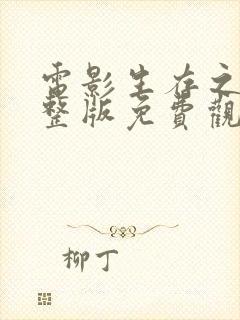 電影生存之
整版免費觀
柳丁